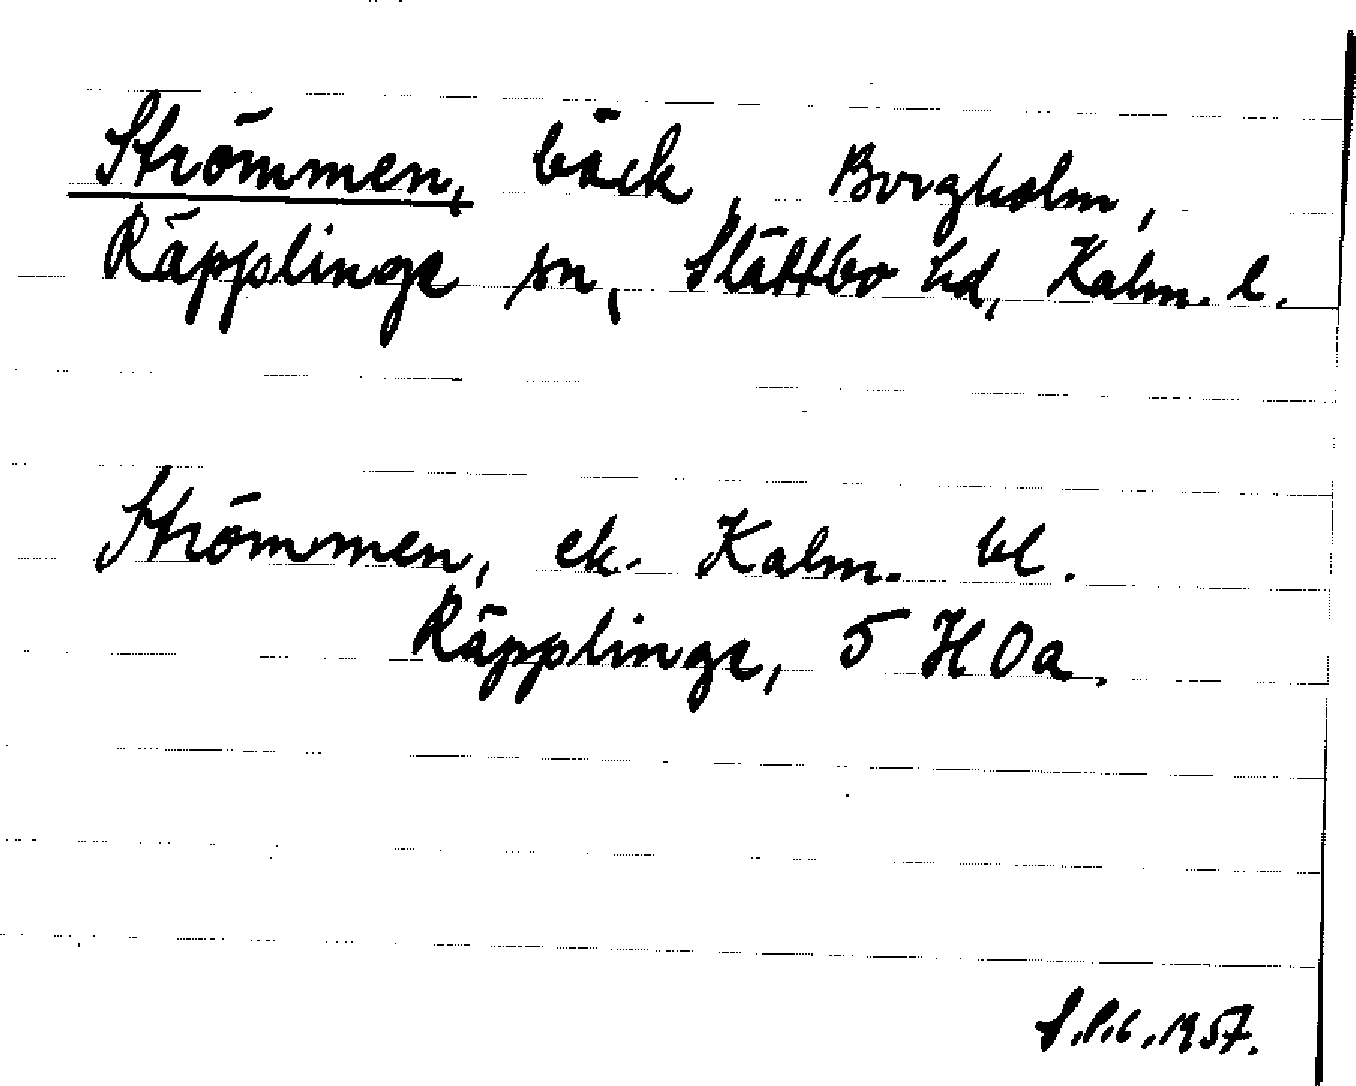 Strömmen, bäck, Borgholm,
Räpplinge sn, Slättbo hd, Kalm. l.
Strömmen, ek. Kalm. bl.
Räpplinge, 5 H 0a.
1957.